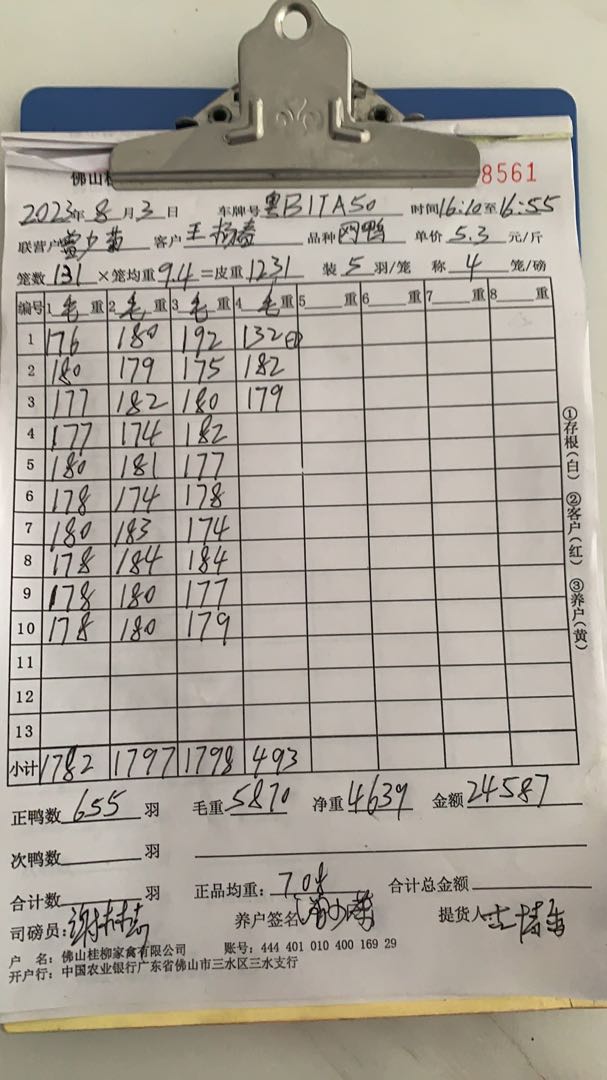 佛山桂
8561
2023年8月3日 车牌号 粤B1TA50 时间16:10至16:55
联营户 客户 王杨春 品种 网鸭 单价 5.3 元/斤
笼数 131 ×笼均重 9.4 =皮重 1231 装 5 羽/笼 称 4 笼/磅
编号 1 毛 重 2 毛 重 3 毛 重 4 毛 重 5 重 6 重 7 重 8 重
1 176 180 192 132
2 180 179 175 182
3 177 182 180 179
4 177 174 182
5 180 181 177
6 178 174 178
7 180 183 174
8 178 184 184
9 178 180 177
10 178 180 179
11
12
13
小计 1782 1797 1798 493
①存根(白) ②客户(红) ③养户(黄)
正鸭数 655 羽 毛重 5870 净重 4639 金额 24587
次鸭数 羽
合计数 羽 正品均重: 7.08 合计总金额
司磅员: 养户签名 提货人
户 名: 佛山桂柳家禽有限公司 账号: 444 401 010 400 169 29
开户行: 中国农业银行广东省佛山市三水区三水支行